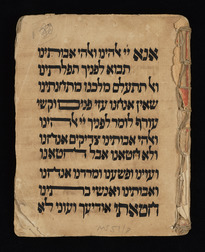 אנא יי אלהינו ואלהי אבותינו
תבוא לפניך תפלתינו
ואל תתעלם מלכנו מתחנתינו
שאין אנחנו עזי פנים וקשי
עורף לומר לפניך יי אלהינו
ואלהי אבותינו צדיקים אנחנו
ולא חטאנו אבל חטאנו
העוינו ופשענו ומרדנו אנחנו
ואבותינו ואנשי ביתינו
חטאתי אודיעך ועוני לא